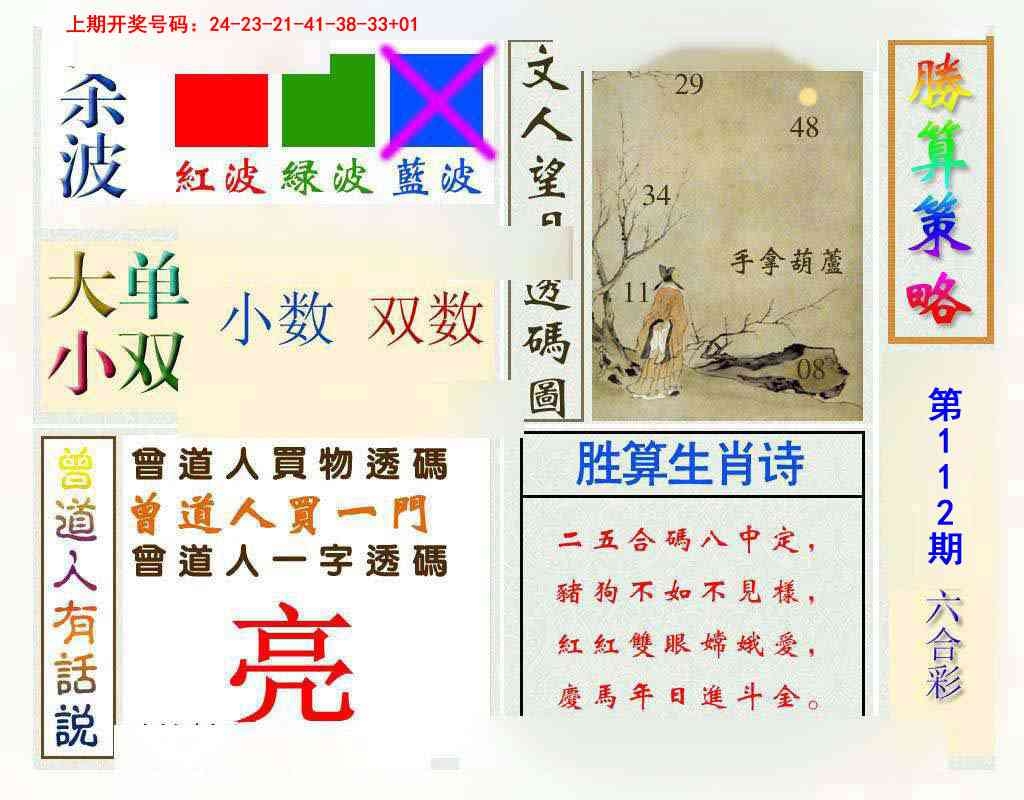 上期开奖号码：24-23-21-41-38-33+01
杀波
紅波
緑波
藍波
大单
小双
小数
双数
文人望月透碼圖
29
48
34
手拿葫蘆
11
08
勝算策略
第112期
六合彩
曾道人有話説
曾道人買物透碼
曾道人買一門
曾道人一字透碼
亮
胜算生肖诗
二五合碼八中定，
豬狗不如不見樣，
紅紅雙眼嫦娥愛，
慶馬年日進斗金。